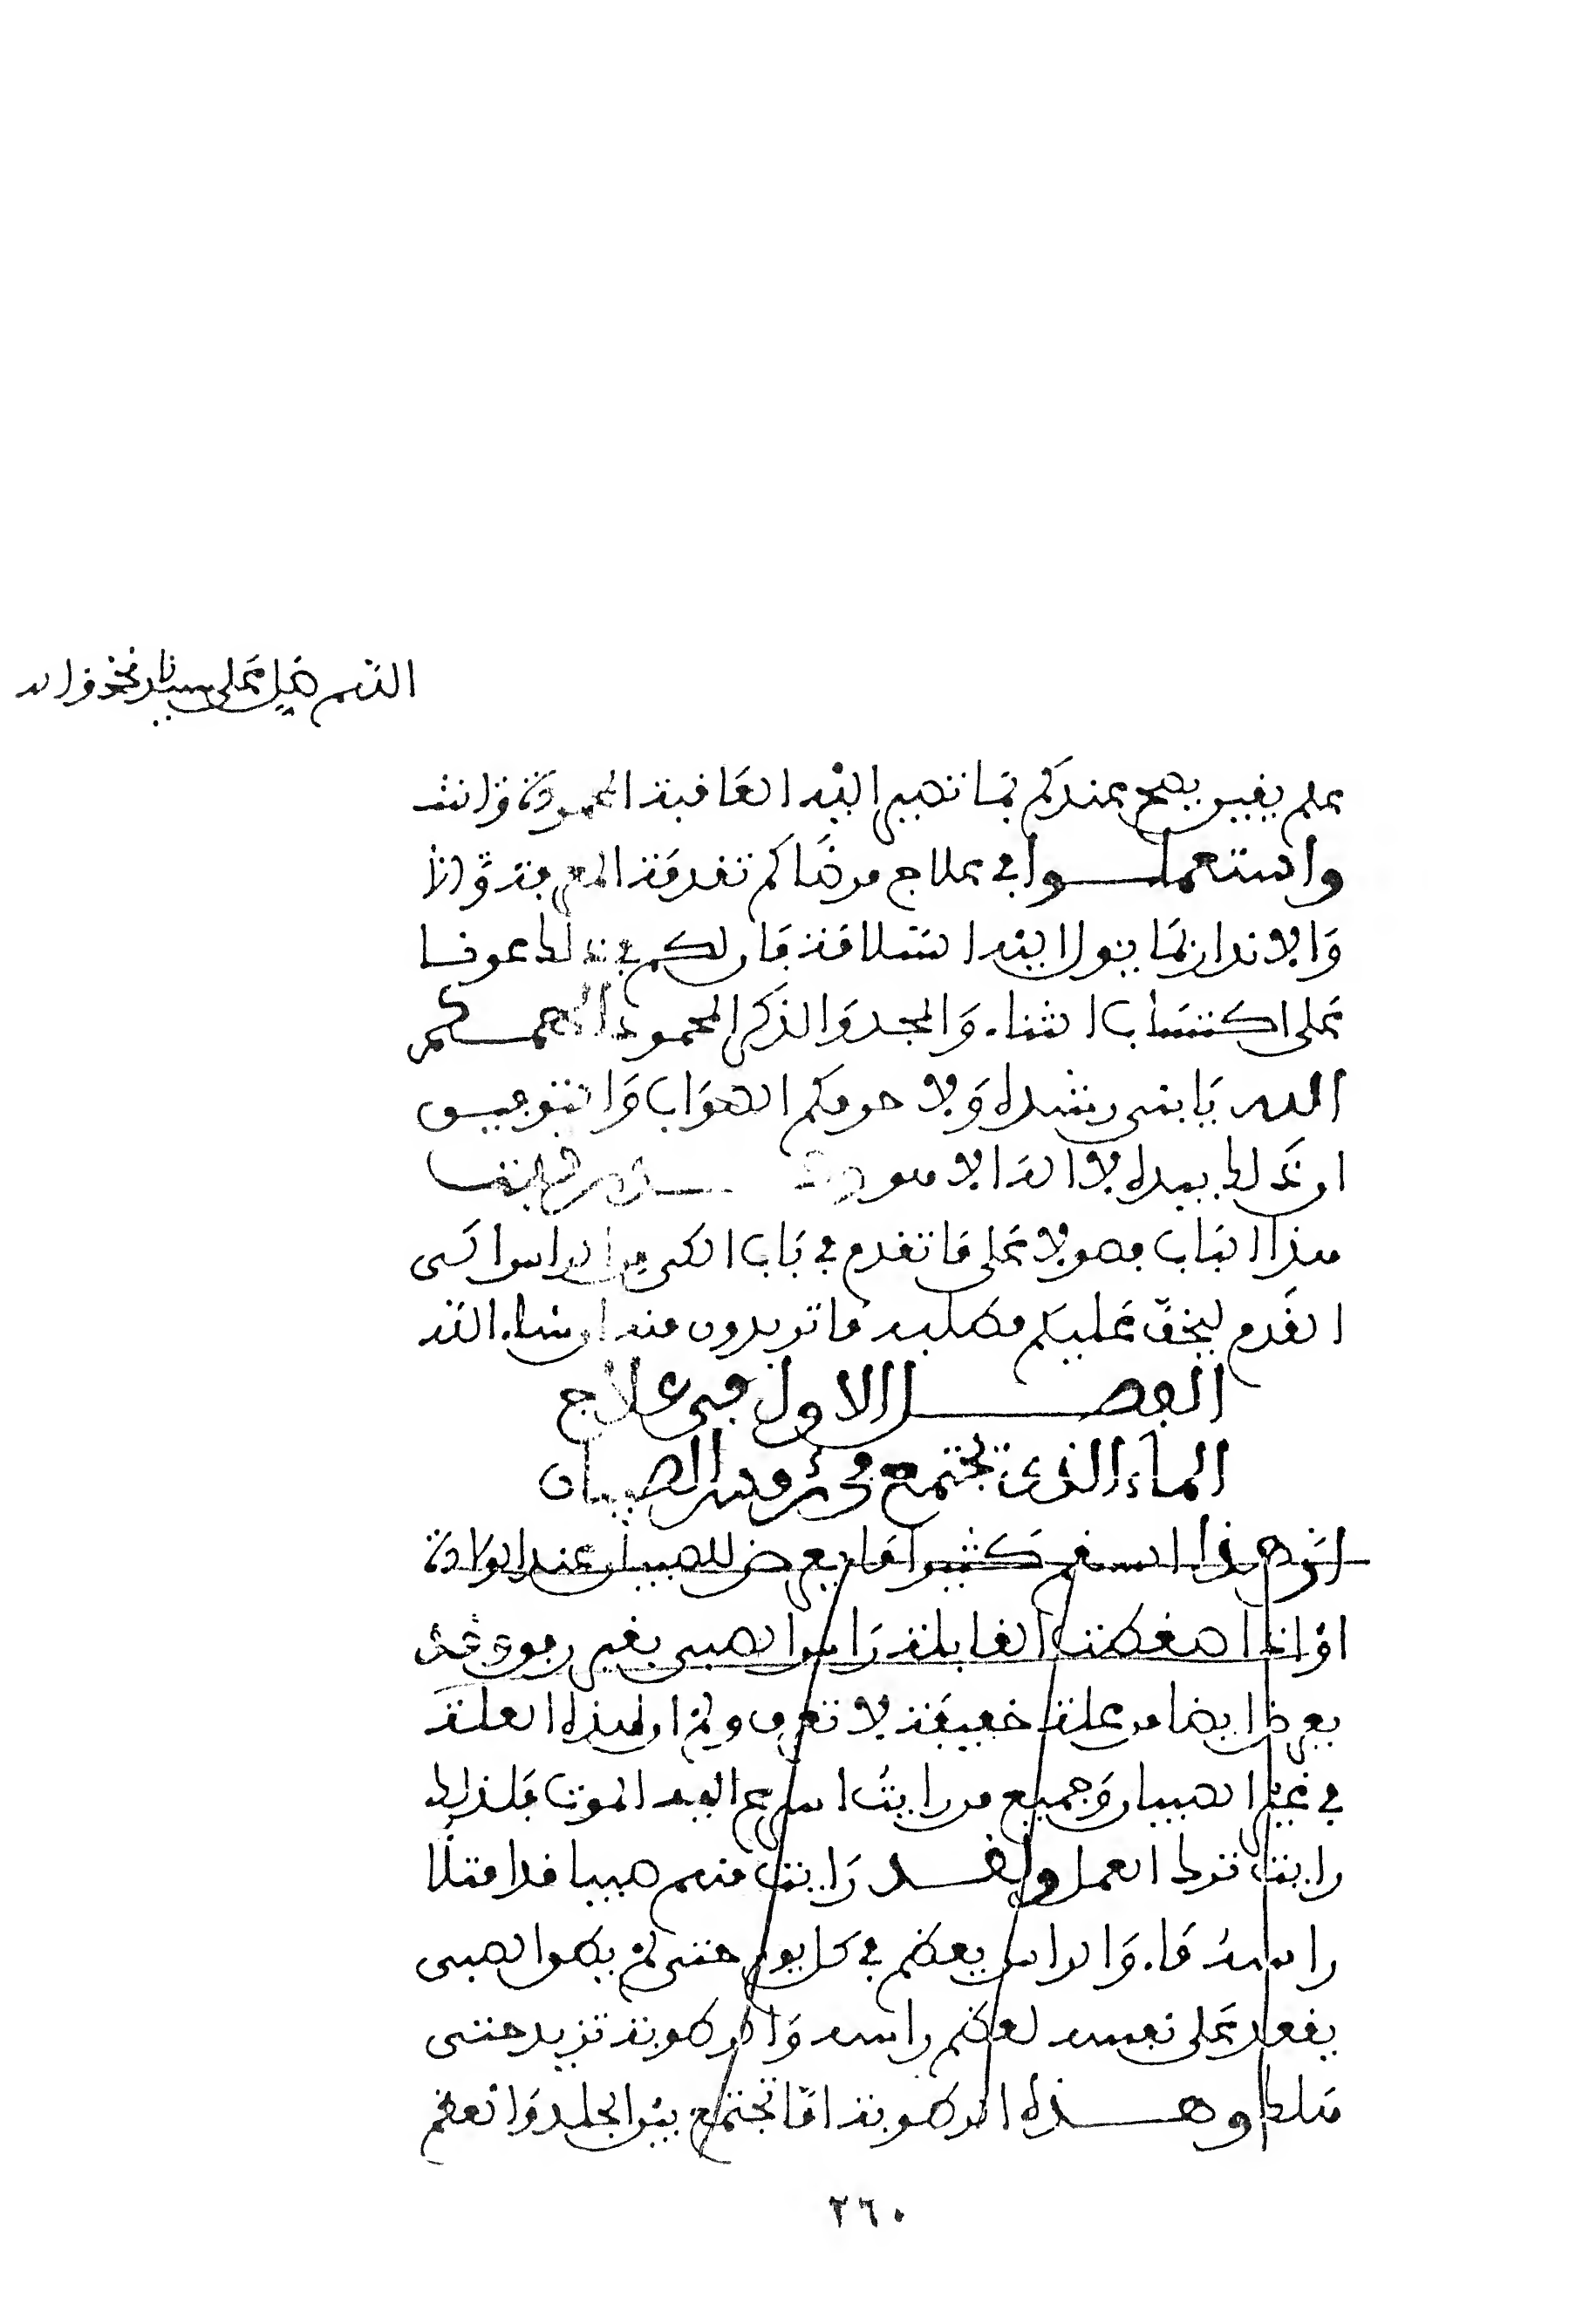 اللهم صل على سيدنا محمد واله
علم يقين يصح عندكم بما تصير اليه العاقبة المحمودة واثبت
واستعملوا في علاج مرضاكم تقدمة المعرفة وانذا
والانذار بما يئول اليه السلامة فان لكم في ذلك عونا
على اكتساب الثناء والمجد والذكر المحمود الهمكم
الله يا بني رشده ولا حرمكم الصواب والتوفيق
ان ذلك بيده لا اله الا هو
هذا الباب فصولا على ما تقدم في باب الكي من الراس الى
القدم ليخف عليكم مطلبه ما تريدون منه ان شاء الله
الفصل الاول في علاج
الماء الذي تجتمع في رءوس الصبيان
ان هذا السقم كثيرا ما يعرض للصبيان عند الولادة
او اذا ضغطت القابلة راس الصبي بغير رفق وقد
يعرض ايضا من علة خفية لا تعرف ولم ار هذه العلة
في غير الصبيان وجميع من رايت اسرع اليه الموت فلذلك
رايت ترك العمل ولقد رايت منهم صبيا قد امتلا
راسه ماء والراس يعظم في كل يوم حتى لم يطق الصبي
يقعد على نفسه لعظم راسه والرطوبة تزيد حتى
هلك وهذه الرطوبة اما تجتمع بين الجلد والعظم
٢٦٠